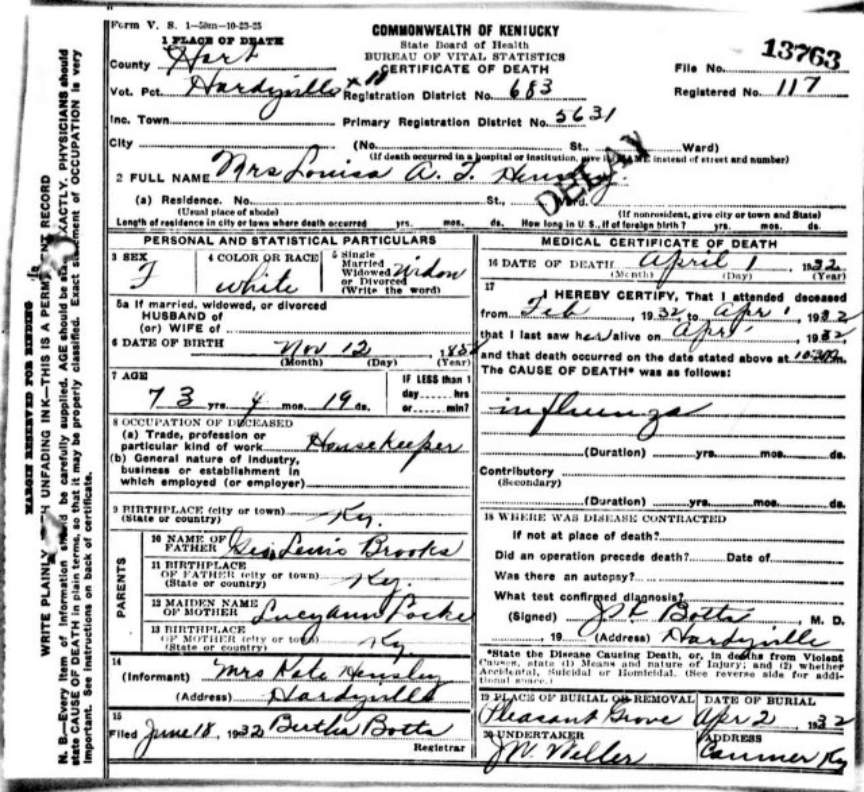 Form V. S. 1-50m-10-23-25
COMMONWEALTH OF KENTUCKY
State Board of Health
BUREAU OF VITAL STATISTICS
CERTIFICATE OF DEATH
1 PLACE OF DEATH
County Hart
Vot. Pct. Hardyville
Inc. Town
City
Registration District No. 683
Primary Registration District No. 5631
File No. 13763
Registered No. 117
(No. St., Ward)
(If death occurred in a hospital or institution, give its NAME instead of street and number)
DELAY
2 FULL NAME Mrs Louisa A. T. Hensley
(a) Residence. No. St., Ward.
(Usual place of abode) (If nonresident, give city or town and State)
Length of residence in city or town where death occurred yrs. mos. ds. How long in U.S., if of foreign birth? yrs. mos. ds.
PERSONAL AND STATISTICAL PARTICULARS
3 SEX F
4 COLOR OR RACE white
5 Single Married Widowed or Divorced (Write the word) Widow
5a If married, widowed, or divorced
HUSBAND of
(or) WIFE of
6 DATE OF BIRTH Nov 12
(Month) (Day) (Year)
7 AGE
73 yrs. 4 mos. 19 ds.
IF LESS than 1
day hrs
or min?
8 OCCUPATION OF DECEASED
(a) Trade, profession or
particular kind of work Housekeeper
(b) General nature of industry,
business or establishment in
which employed (or employer)
9 BIRTHPLACE (city or town)
(State or country) Ky.
PARENTS
10 NAME OF
FATHER Lewis Brooks
11 BIRTHPLACE
OF FATHER (city or town)
(State or country) Ky.
12 MAIDEN NAME
OF MOTHER Lucy Ann Locke
13 BIRTHPLACE
OF MOTHER (city or town)
(State or country) Ky.
14
(Informant) Mrs Kate Hensley
(Address) Hardyville
15
Filed June 18, 1932 Bertha Botts
Registrar
MEDICAL CERTIFICATE OF DEATH
16 DATE OF DEATH April 1 1932
(Month) (Day) (Year)
17
I HEREBY CERTIFY, That I attended deceased
from Feb, 1932 to Apr 1 1932
that I last saw her alive on Apr 1 1932,
and that death occurred on the date stated above at
The CAUSE OF DEATH* was as follows:
influenza
(Duration) yrs. mos. ds.
Contributory
(Secondary)
(Duration) yrs. mos. ds.
18 WHERE WAS DISEASE CONTRACTED
If not at place of death?
Did an operation precede death? Date of
Was there an autopsy?
What test confirmed diagnosis?
(Signed) Botts, M. D.
, 19 (Address) Hardyville
*State the Disease Causing Death, or, in deaths from Violent
Causes, state (1) Means and nature of Injury; and (2) whether
Accidental, Suicidal or Homicidal. (See reverse side for addi-
tional space.)
19 PLACE OF BURIAL OR REMOVAL
Pleasant Grove
DATE OF BURIAL
Apr 2, 1932
20 UNDERTAKER
J W. Weller
ADDRESS
Canmer Ky
MARGIN RESERVED FOR BINDING
WRITE PLAINLY UNFADING INK—THIS IS A PERMANENT RECORD
N. B.—Every item of information should be carefully supplied. AGE should be stated EXACTLY. PHYSICIANS should
state CAUSE OF DEATH in plain terms, so that it may be properly classified. Exact statement of OCCUPATION is very
important. See instructions on back of certificate.